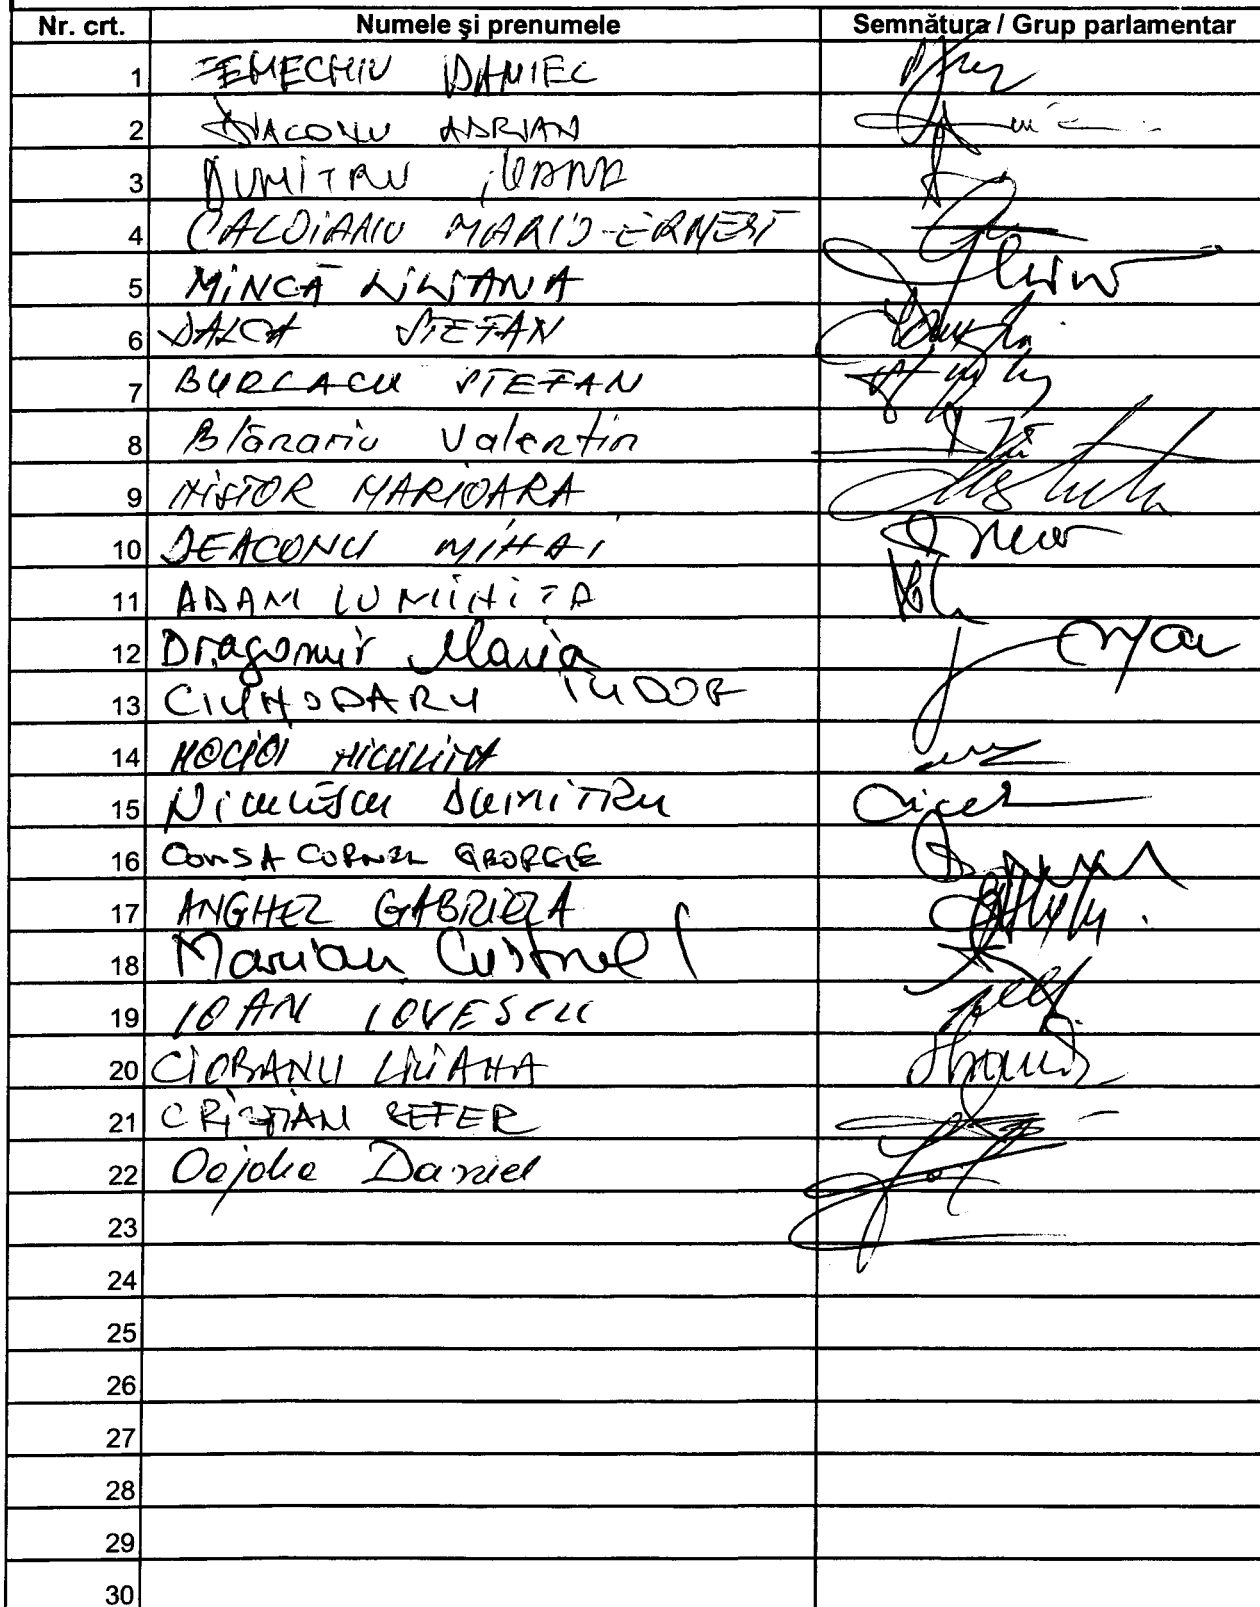 Nr. crt. Numele şi prenumele Semnătura / Grup parlamentar
1 DANIEL
2 DIACONU ADRIAN
3 DUMITRU IOANA
4 CALOIANU MARIO-ERNEST
5 MINCĂ LILIANA
6 DALCA STEFAN
7 BURLACU STEFAN
8 Blănariu Valentin
9 NISTOR MARIOARA
10 DEACONU MIHAI
11 ADAM LUMINITA
12 Dragomir Maria
13 CIUHODARU TUDOR
14
15 Niculescu DUMITRU
16 COMSA CORNEL GEORGE
17 ANGHEL GABRIELA
18 Marian Cristinel
19 IOAN IOVESCU
20 CIOBANU LILIANA
21 CRISTIAN SEFER
22 Daniel
23
24
25
26
27
28
29
30